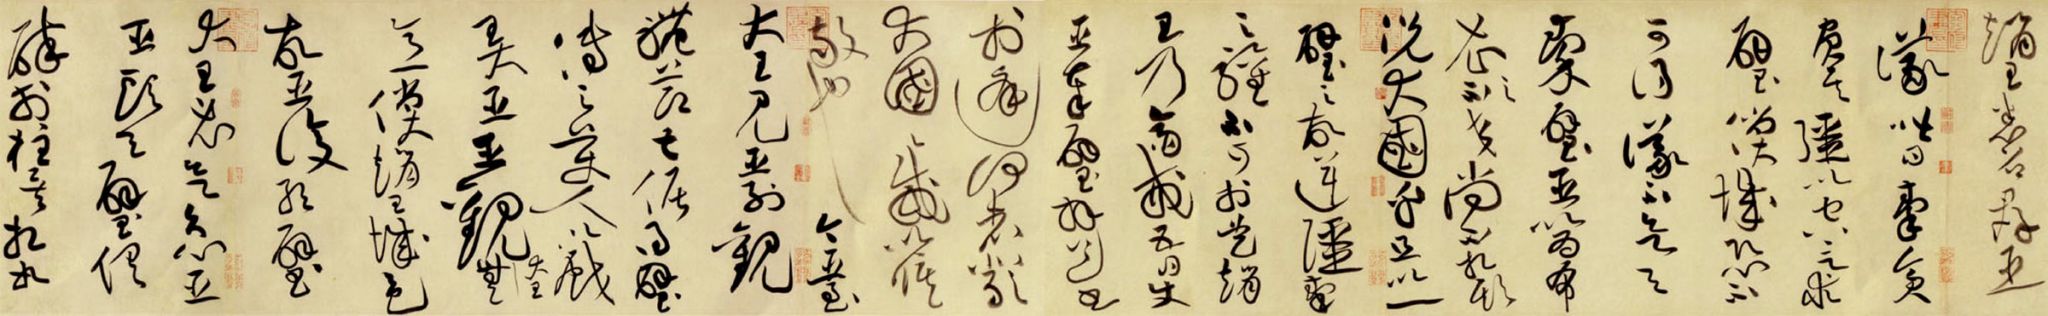 趙王悉召群臣
議皆曰秦貪
負其彊以空言求
璧償城恐不
可得議不欲予
秦璧臣以為布
衣之交尚不相欺
況大國乎且以一
璧之故逆彊秦
之驩不可於是趙
王乃齋戒五日使
臣奉璧拜送書
於庭何者嚴
大國之威以脩
敬也今臣至
大王見臣列觀
禮節甚倨得璧
傳之美人以戲
弄臣臣觀大王無
意償趙王城邑
故臣復取璧
大王必欲急臣
臣頭與璧俱
碎於柱矣相如